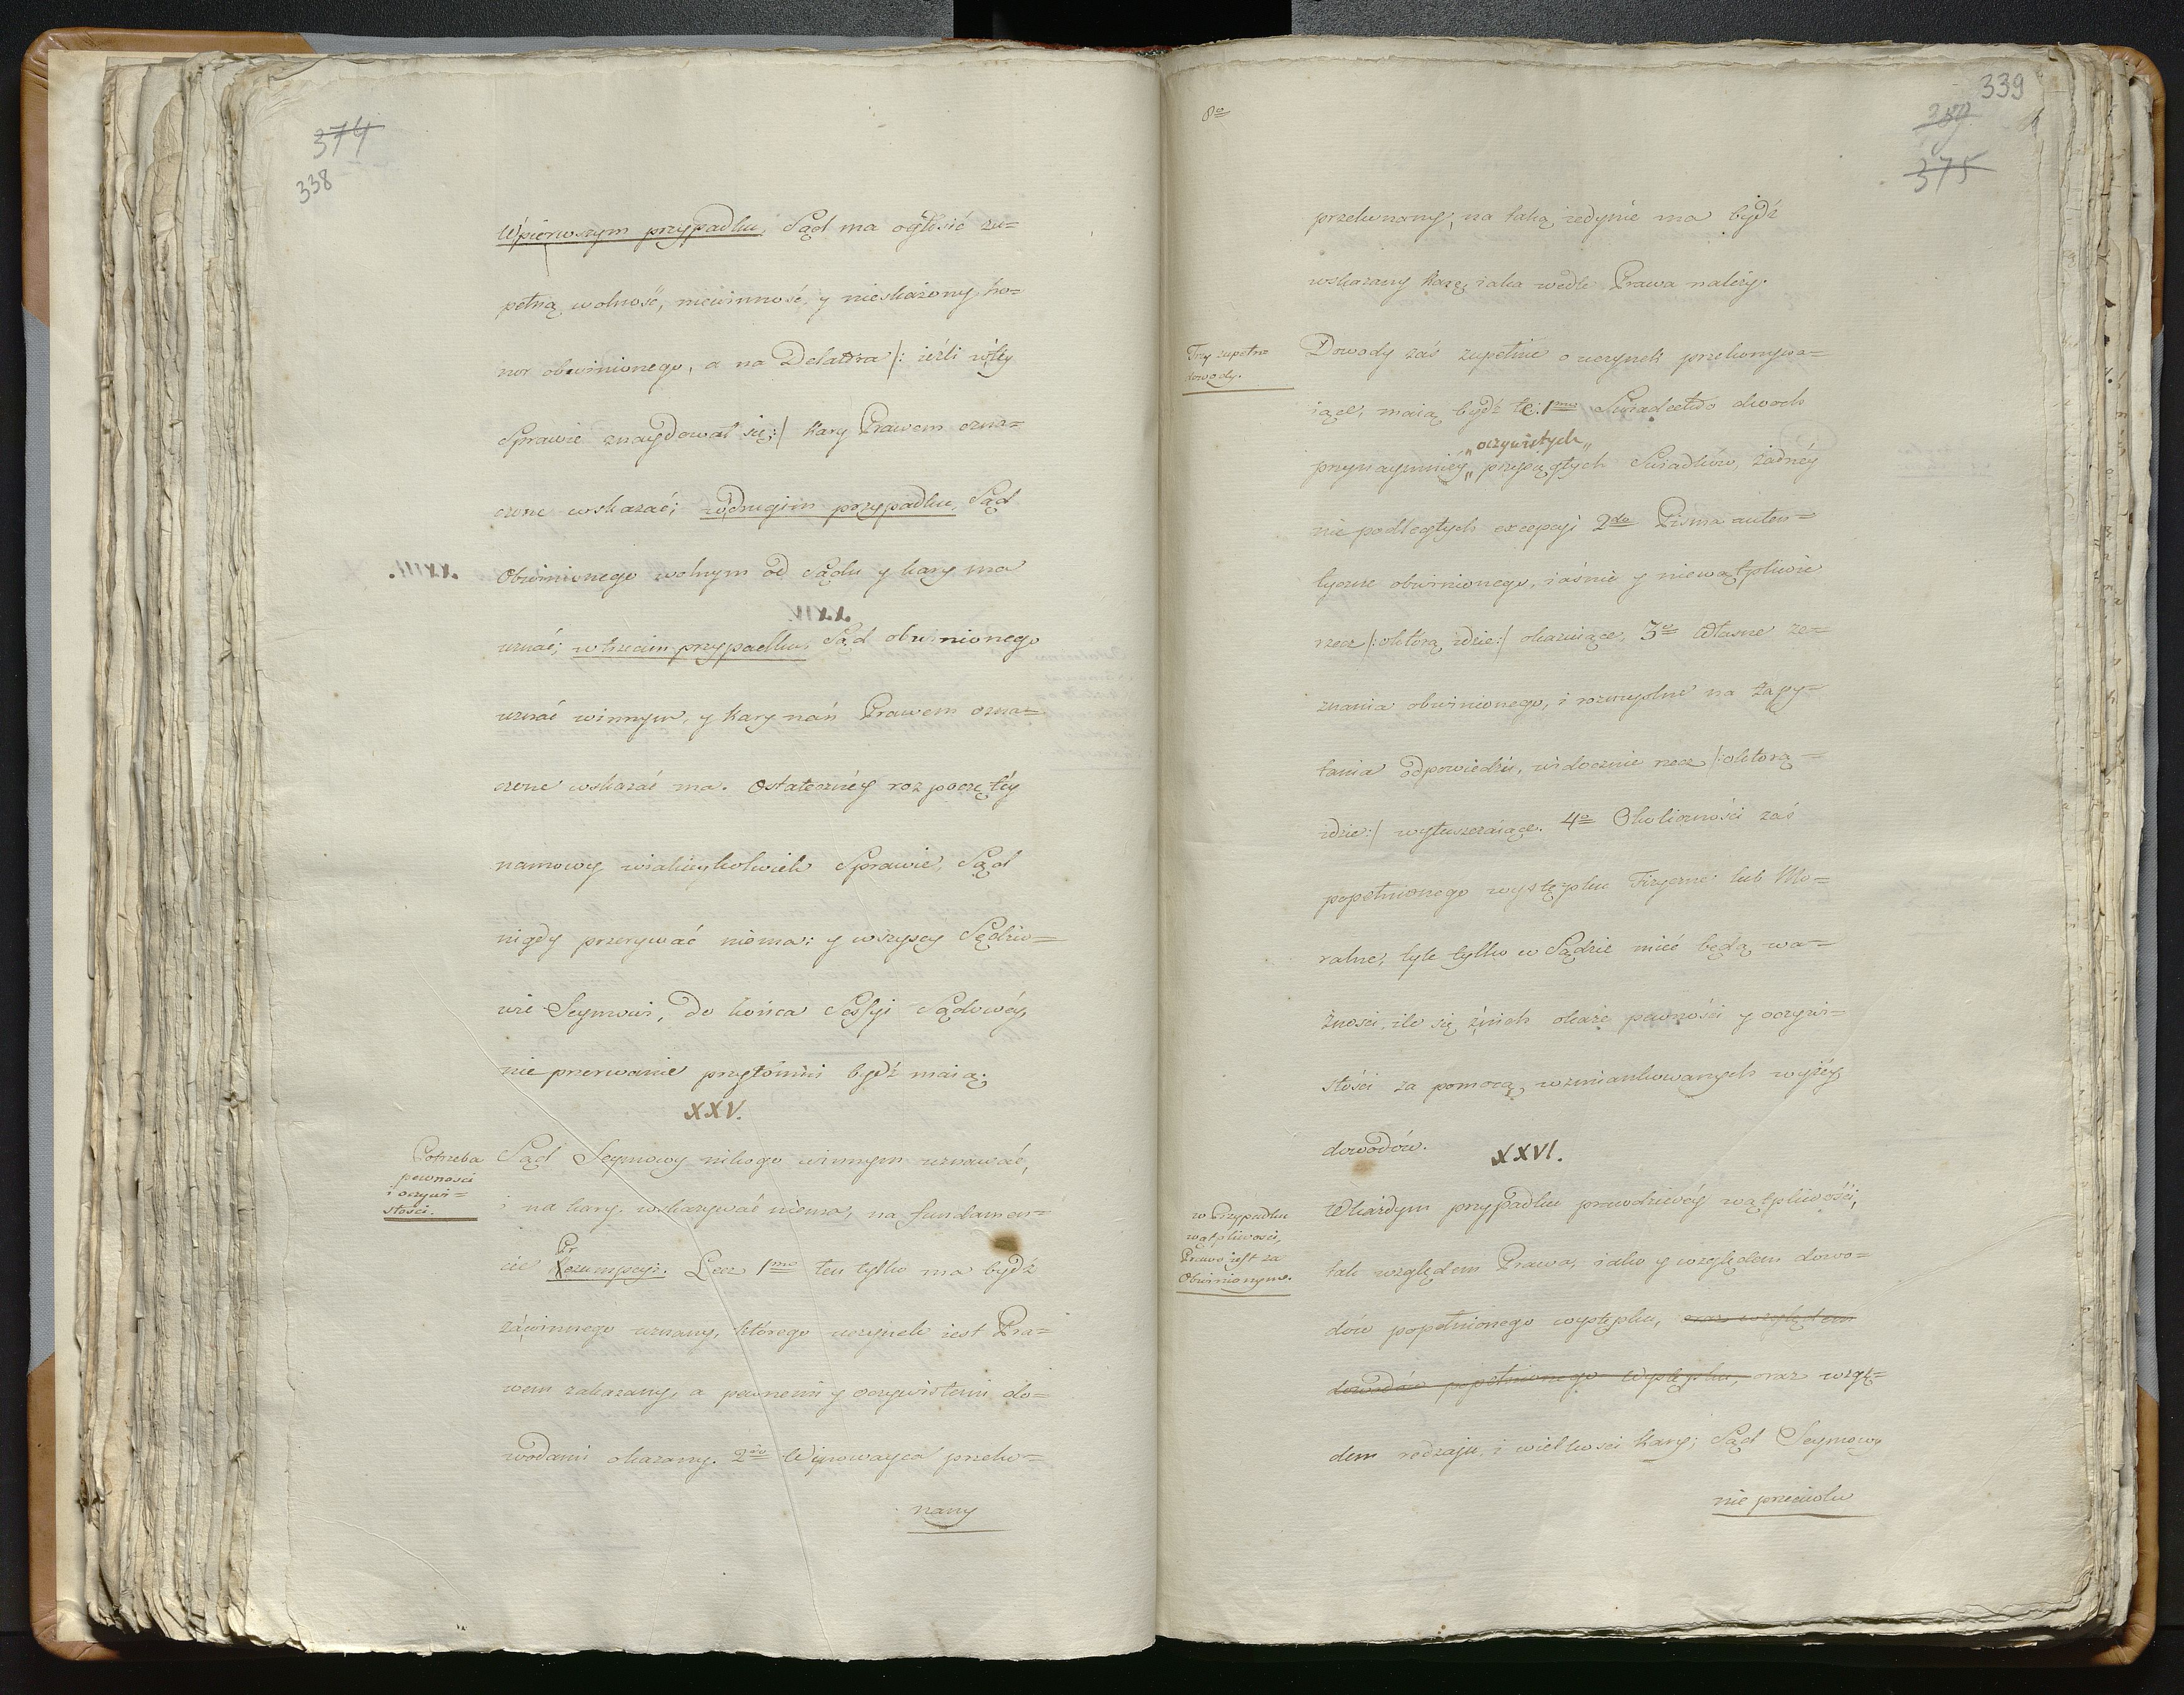 374
338
W pierwszym przypadku, Sąd ma ogłosić zu=
pełną wolność, niewinność, y nieskażony ho=
nor obwinionego, a na Delatora /: ieźli w téy
Sprawie znaydował się :/ kary Prawem ozna=
czone wskazać; w drugim przypadku, Sąd
Obwinionego wolnym od sądu y kary ma
uznać; w trzecim przypadku, Sąd obwinionego
uznać winnym, y kary nań Prawem ozna=
czone wskazać ma. Ostatecznéy rozpoczętéy
namowy w iakieykolwiek Sprawie, Sąd
nigdy przerywać niema: y wszyscy Sędzio=
wie Seymowi, do końca Sessyi Sądowéy,
nie przerwanie przytomni bydź maią.
XXV.
Potrzeba
pewnosci
i oczywi=
stości.
Sąd Seymowy nikogo winnym uznawać,
i na kary wskazywać niema, na fundamen=
Pr
cie ezumpcyi. Lecz 1mo ten tylko ma bydź
za winnego uznany, którego uczynek iest Pra=
wem zakazany, a pewnemi y oczywistemi do=
wodami okazany. 2do Winowayca przeko=
nany
8o
339
375
przekonany, na taką iedynie ma bydź
wskazany karę, iaka wedle Prawa należy.
Trzy zupełne
dowody.
Dowody zaś zupełnie o uczynek przekonywa=
iące, maią bydź te: 1mo Świadectwo dwoch
oczywistych
przynaymniéy przysięgłych Świadków, żadnéy
nie podległych excepcyi 2do Pisma auten=
tyczne obwinionego, iaśnie y niewątpliwie
rzecz /: o którą idzie :/ okazuiące, 3o Własne ze=
znania obwinionego, i rozmyślne na zapy=
tania odpowiedzi, widocznie rzecz /: o którą =
idzie :/ wytłuszczaiące. 4o Okoliczności zaś
popełnionego występku Fizyczne lub Mo=
ralne, tyle tylko w Sądzie mieć będą wa=
żności, ile się z nich okaże pewności y oczywi=
stości za pomocą wzmiankowanych wyżéy
dowodów.
XXVI.
w Przypadku
wątpliwości,
Prawo iest za
Obwinionym.
W każdym przypadku prawdziwéy wątpliwości,
tak względem Prawa, iako y względem dowo=
dów popełnionego występku, oraz względem
dowodów popełnionego Występku, oraz wzglę=
dem rodzaju, i wielkości kary; Sąd Seymowy
nie przeciwko